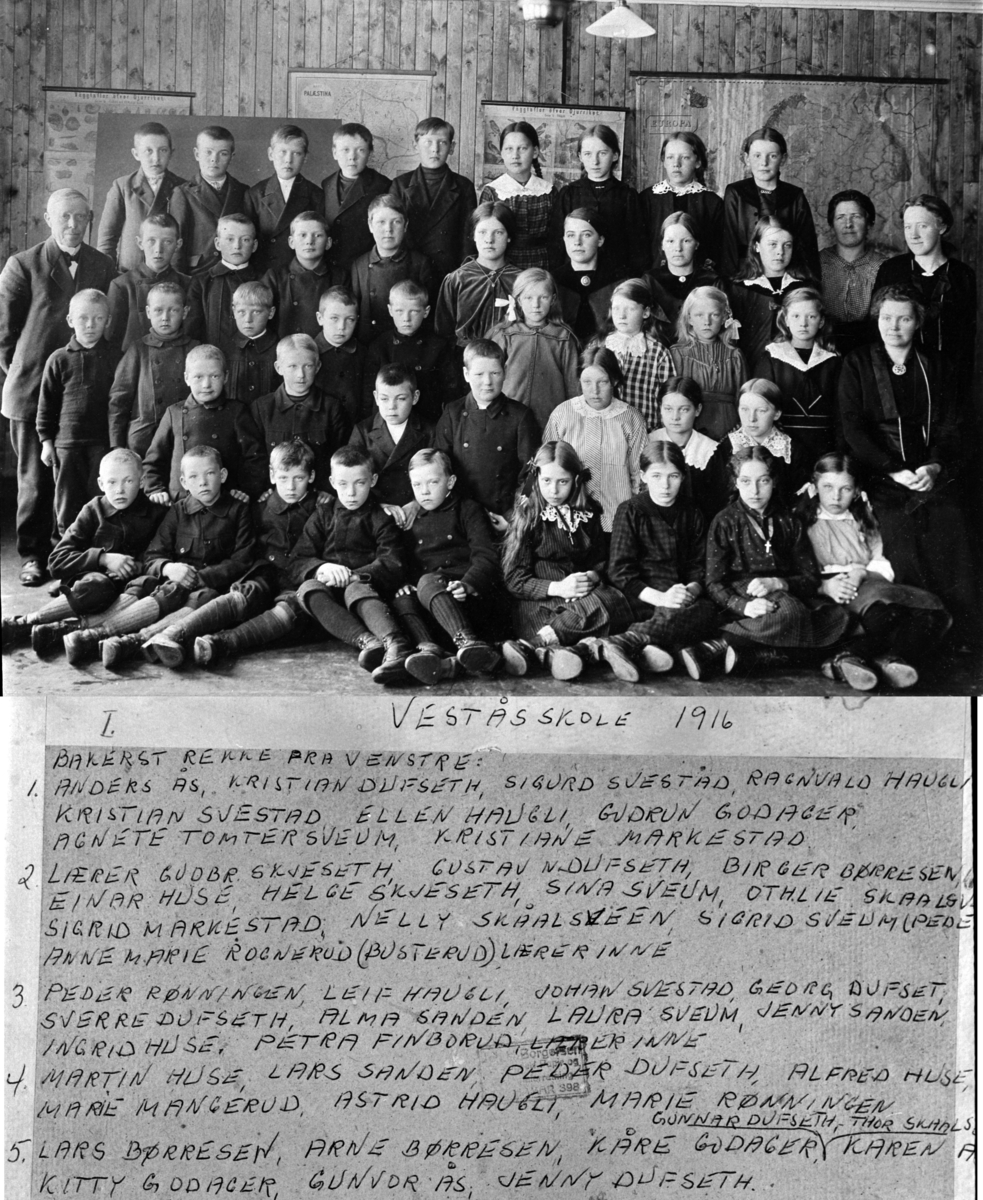 Væggtaflor öfver Djurriket.
PALÆSTINA
Væggtaflor öfver Djurriket.
EUROPA
I. VESTÅSSKOLE 1916
BAKERST REKKE FRA VENSTRE:
1. ANDERS ÅS, KRISTIAN DUFSETH, SIGURD SVESTAD, RAGNVALD HAUGLI
KRISTIAN SVESTAD ELLEN HAUGLI, GUDRUN GODAGER,
AGNETE TOMTERSVEUM, KRISTIANE MARKESTAD.
2. LÆRER GUDBR. SKJESETH, GUSTAV N. DUFSETH, BIRGER BØRRESEN,
EINAR HUSE, HELGE SKJESETH, SINA SVEUM, OTHLIE SKAALSV
SIGRID MARKESTAD, NELLY SKÅALSVEEN, SIGRID SVEUM (PEDE
ANNE MARIE ROGNERUD (BUSTERUD) LÆRERINNE
3. PEDER RØNNINGEN, LEIF HAUGLI, JOHAN SVESTAD, GEORG DUFSET,
SVERRE DUFSETH, ALMA SANDEN, LAURA SVEUM, JENNY SANDEN,
INGRID HUSE, PETRA FINBORUD, LÆRERINNE
4. MARTIN HUSE, LARS SANDEN, PEDER DUFSETH, ALFRED HUSE,
MARIE MANGERUD, ASTRID HAUGLI, MARIE RØNNINGEN
GUNNAR DUFSETH, THOR SKAALS.
5. LARS BØRRESEN, ARNE BØRRESEN, KÅRE GODAGER, KAREN A
KITTY GODAGER, GUNVOR ÅS, JENNY DUFSETH.